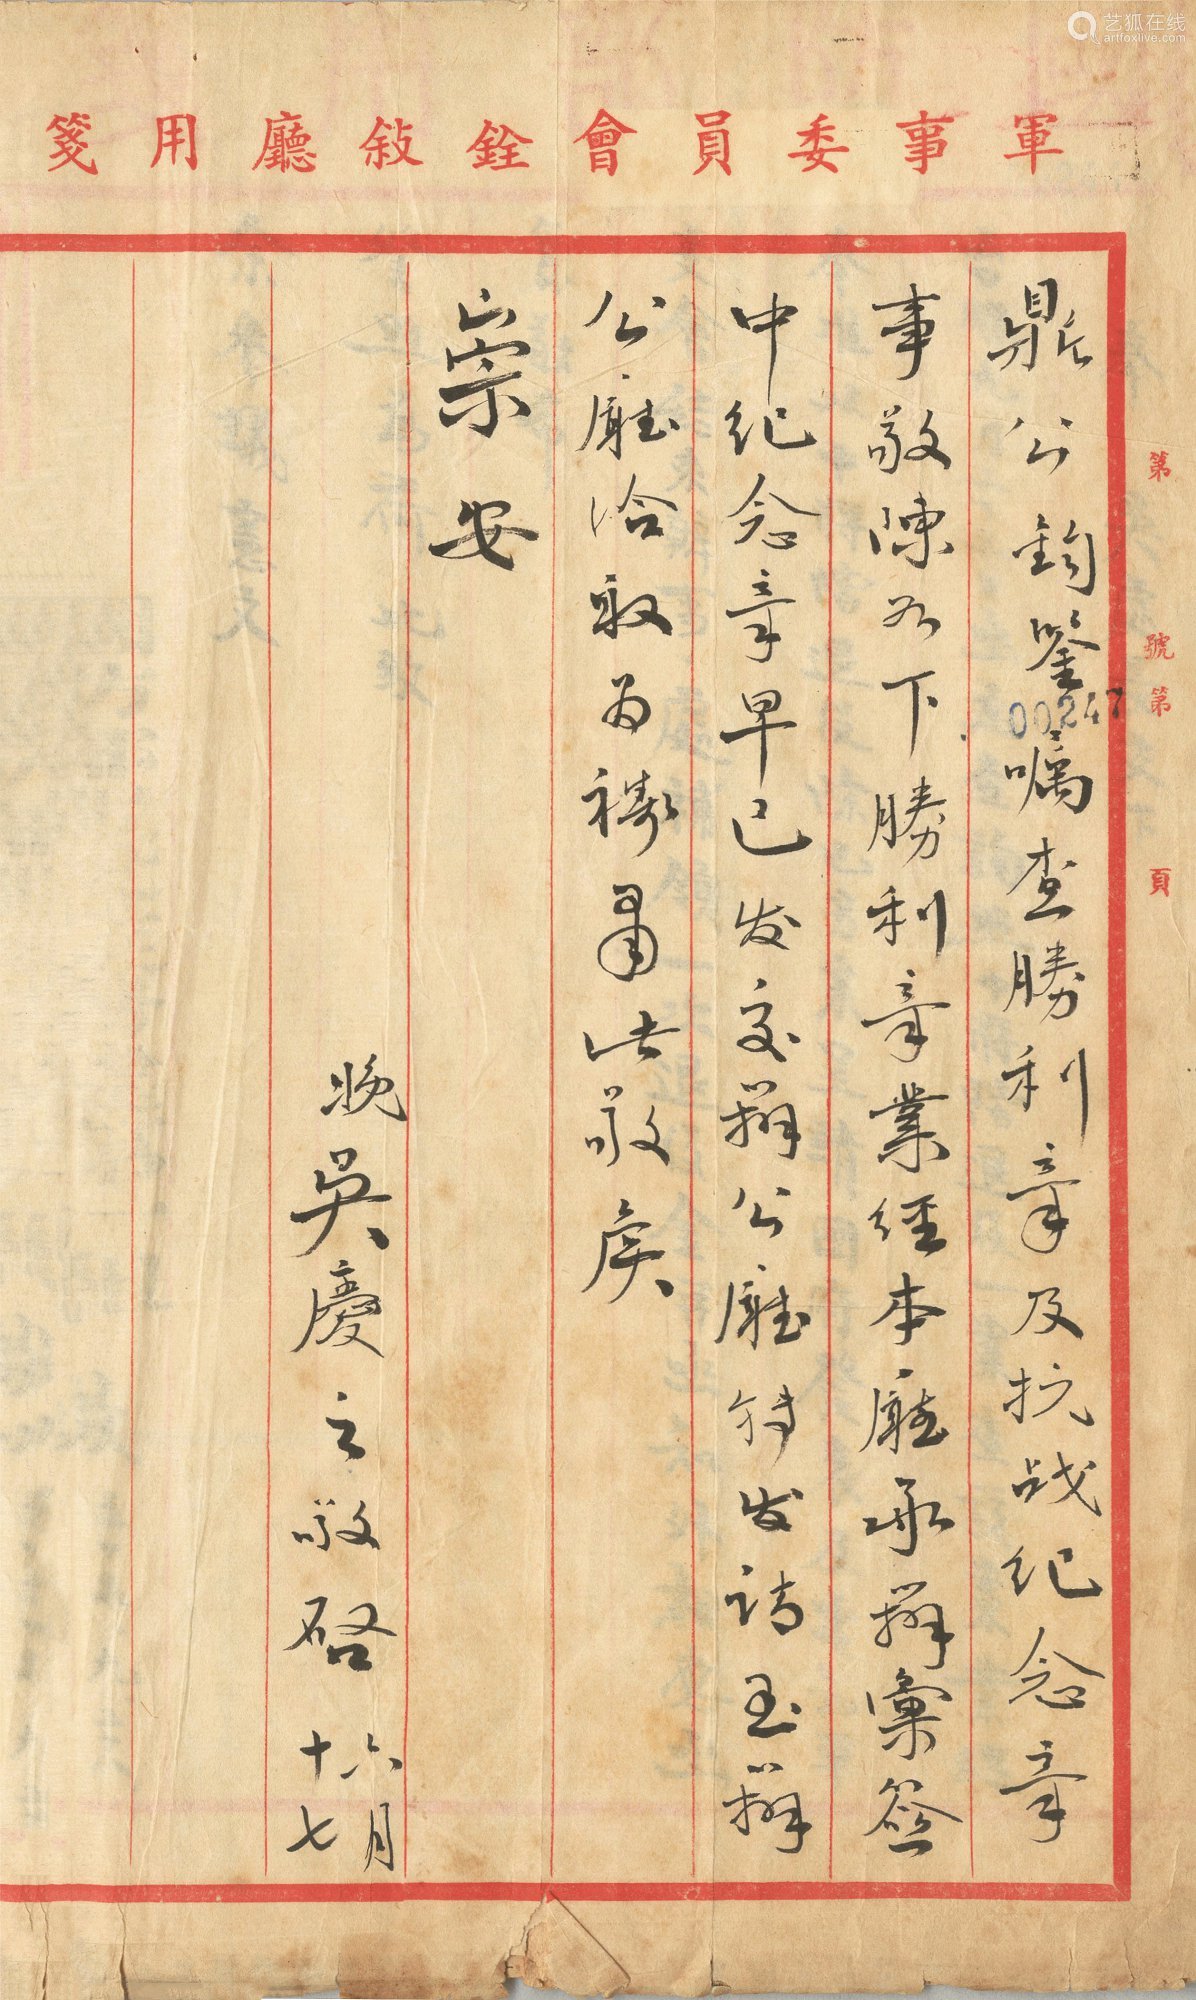 艺狐在线
artfoxlive.com
軍事委員會銓敘廳用箋
第 號第 頁
00247
鼎公鈞鑒囑查勝利章及抗战纪念章
事敬陳如下勝利章業經本廳承辦彙签
中纪念章早已发交辦公廳转发請至辦
公廳洽取為禱肅此敬矦
崇安
晚吳慶之敬啓 六月
十七